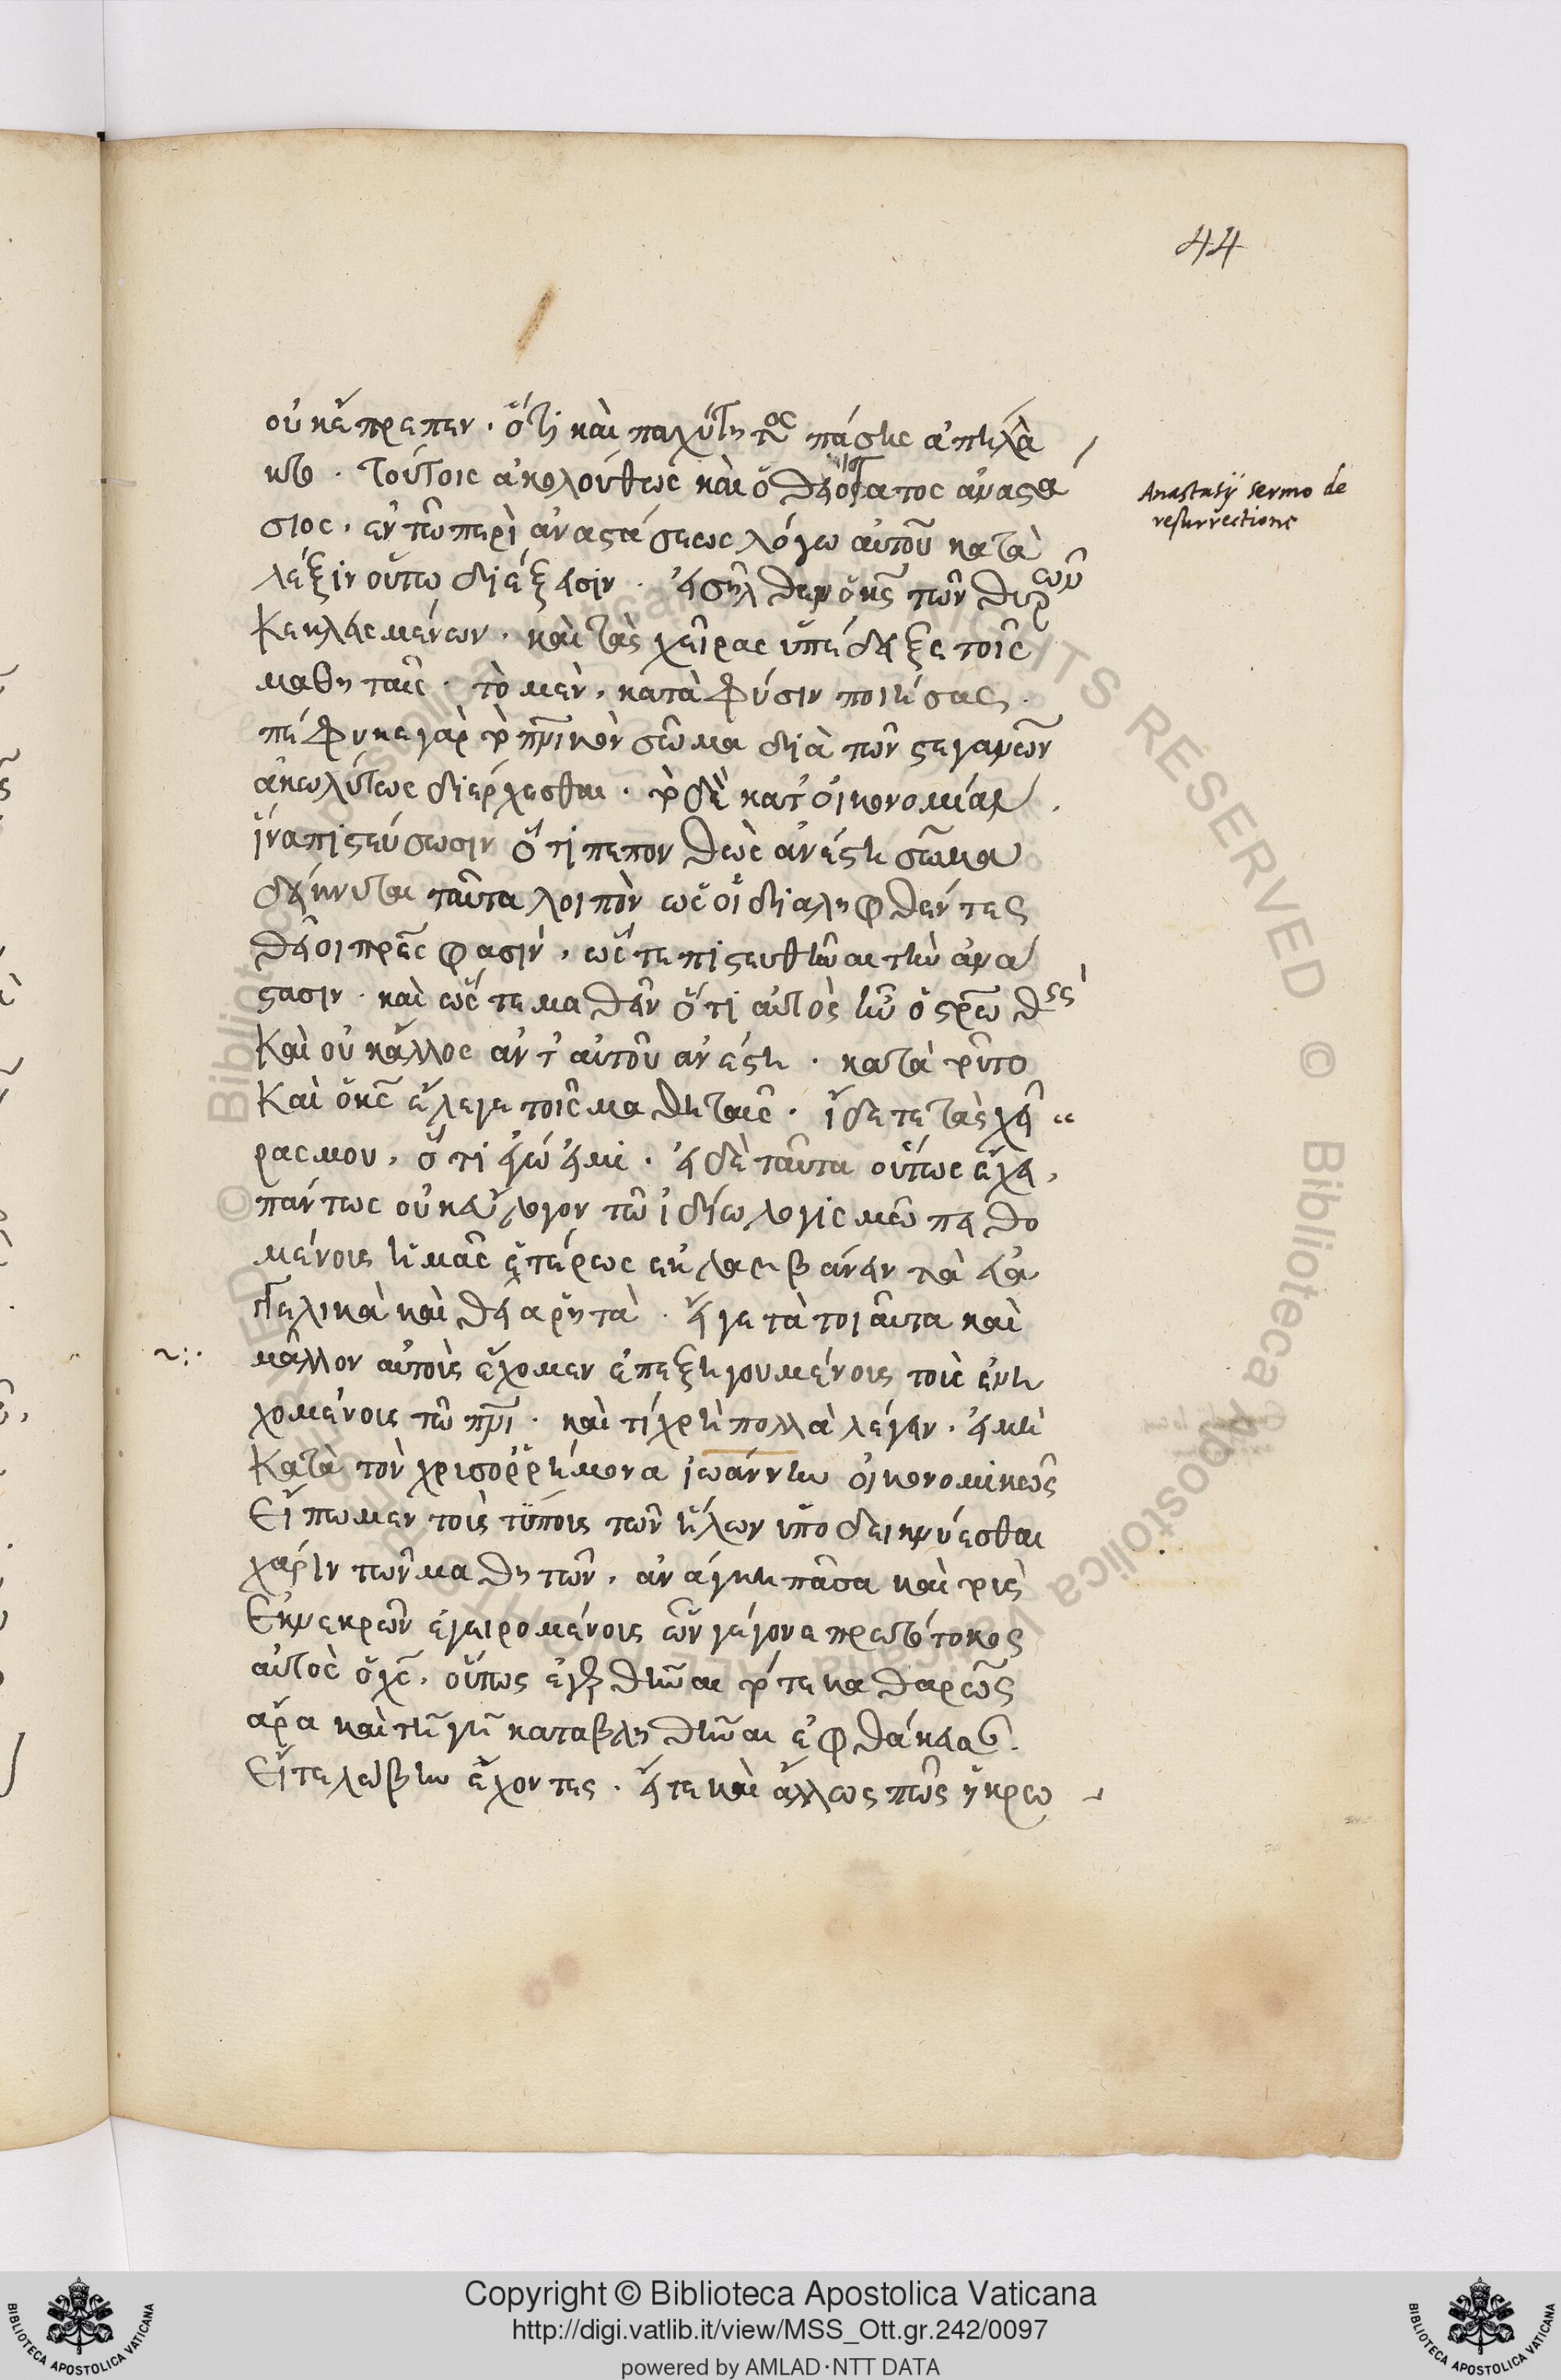 44
οὐκ ἔπρεπεν. ὅτι καὶ παχύτητος πάσης ἀπηλλα
Τούτοις ἀκολούθως καὶ ὁ θειότατος ἀναστά
σιος, ἐν τῷ περὶ ἀναστάσεως λόγω αὐτοῦ κατὰ
λέξιν οὕτω διέξεισιν. εἰσῆλθεν ὁ κς τῶν θυρῶν
κεκλεισμένων. καὶ τὰς χεῖρας ὑπέδειξε τοῖς
μαθηταῖς. τὸ μὲν, κατὰ φύσιν ποιήσας.
πέφυκε γὰρ τὸ πνικὸν σῶμα διὰ τῶν στεγανῶν
ἀκωλύτως διέρχεσθαι. τὸ δὲ κατ' οἰκονομίαν.
ἵνα πιστεύσωσιν ὅτι πεπονθὼς ἀνέστη σῶμα
δείκνυται ταῦτα λοιπὸν ὡς οἱ διαληφθέντες
θεῖοι πρες φασὶν, ὥστε πιστευθῆναι τὴν ἀνά
στασιν. καὶ ὥστε μαθεῖν ὅτι αὐτὸς ἦν ὁ στρωθεὶς
καὶ οὐκ ἄλλος ἀντ' αὐτοῦ ἀνέστη. κατὰ τοῦτο
καὶ ὁ κς ἔλεγε τοῖς μαθηταῖς. ἴδετε τὰς χεῖ
ρας μου, ὅτι ἐγώ εἰμι. εἰ δὲ ταῦτα οὕτως ἔχει,
πάντως οὐκ εὔλογον τῶ ἰδίω λογισμῶ πειθο
μένοις ἡμᾶς ἑτέρως ἐκλαμβάνειν τὰ εὐα
γγελικὰ καὶ θεάρητα. εἴγε τὰ τοιαῦτα καὶ
μᾶλλον αὐτοῖς ἔχομεν ἐπεξηγουμένοις τοῖς ἐνη
χομένοις τῶ πνι. καὶ τί χρὴ πολλὰ λέγειν. εἰ μὴ
κατὰ τὸν χρυσορρήμονα ἰωάννην οἰκονομικῶς
εἴπωμεν τοὺς τύπους τῶν ἥλων ὑποδεικνύεσθαι
χάριν τῶν μαθητῶν, ἀνάγκη πᾶσα καὶ τοὺς
ἐκ νεκρῶν ἐγειρομένους ὧν γέγονε πρωτότοκος
αὐτὸς ὁ χς, οὕτως ἐγερθῆναι τότε καθαρῶς
ἄρα καὶ τῆ γῆ καταβληθῆναι ἐφθάκεισαν.
εἴτε λώβην ἔχοντες. εἴτε καὶ ἄλλως πως ἠκρω
Anastasij sermo de
resurrectione
Copyright © Biblioteca Apostolica Vaticana
http://digi.vatlib.it/view/MSS_Ott.gr.242/0097
powered by AMLAD·NTT DATA
BIBLIOTECA APOSTOLICA VATICANA
BIBLIOTECA APOSTOLICA VATICANA